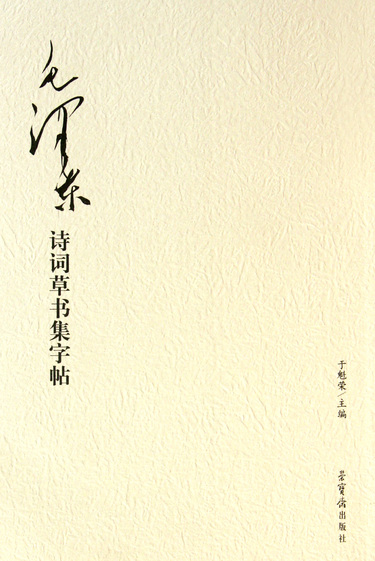 毛泽东
诗词草书集字帖
于魁荣/主编
荣宝斋出版社